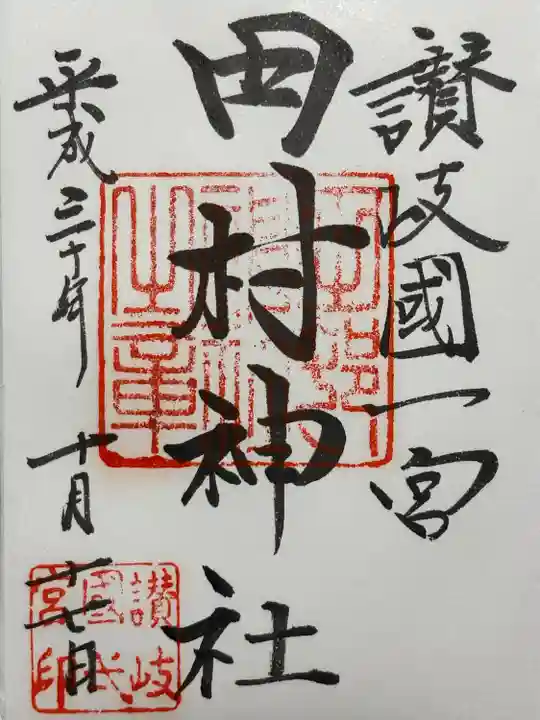 讃岐國一宮
田村神社
平成三十年 十月 廿七日
之章
讃岐
國一
宮印